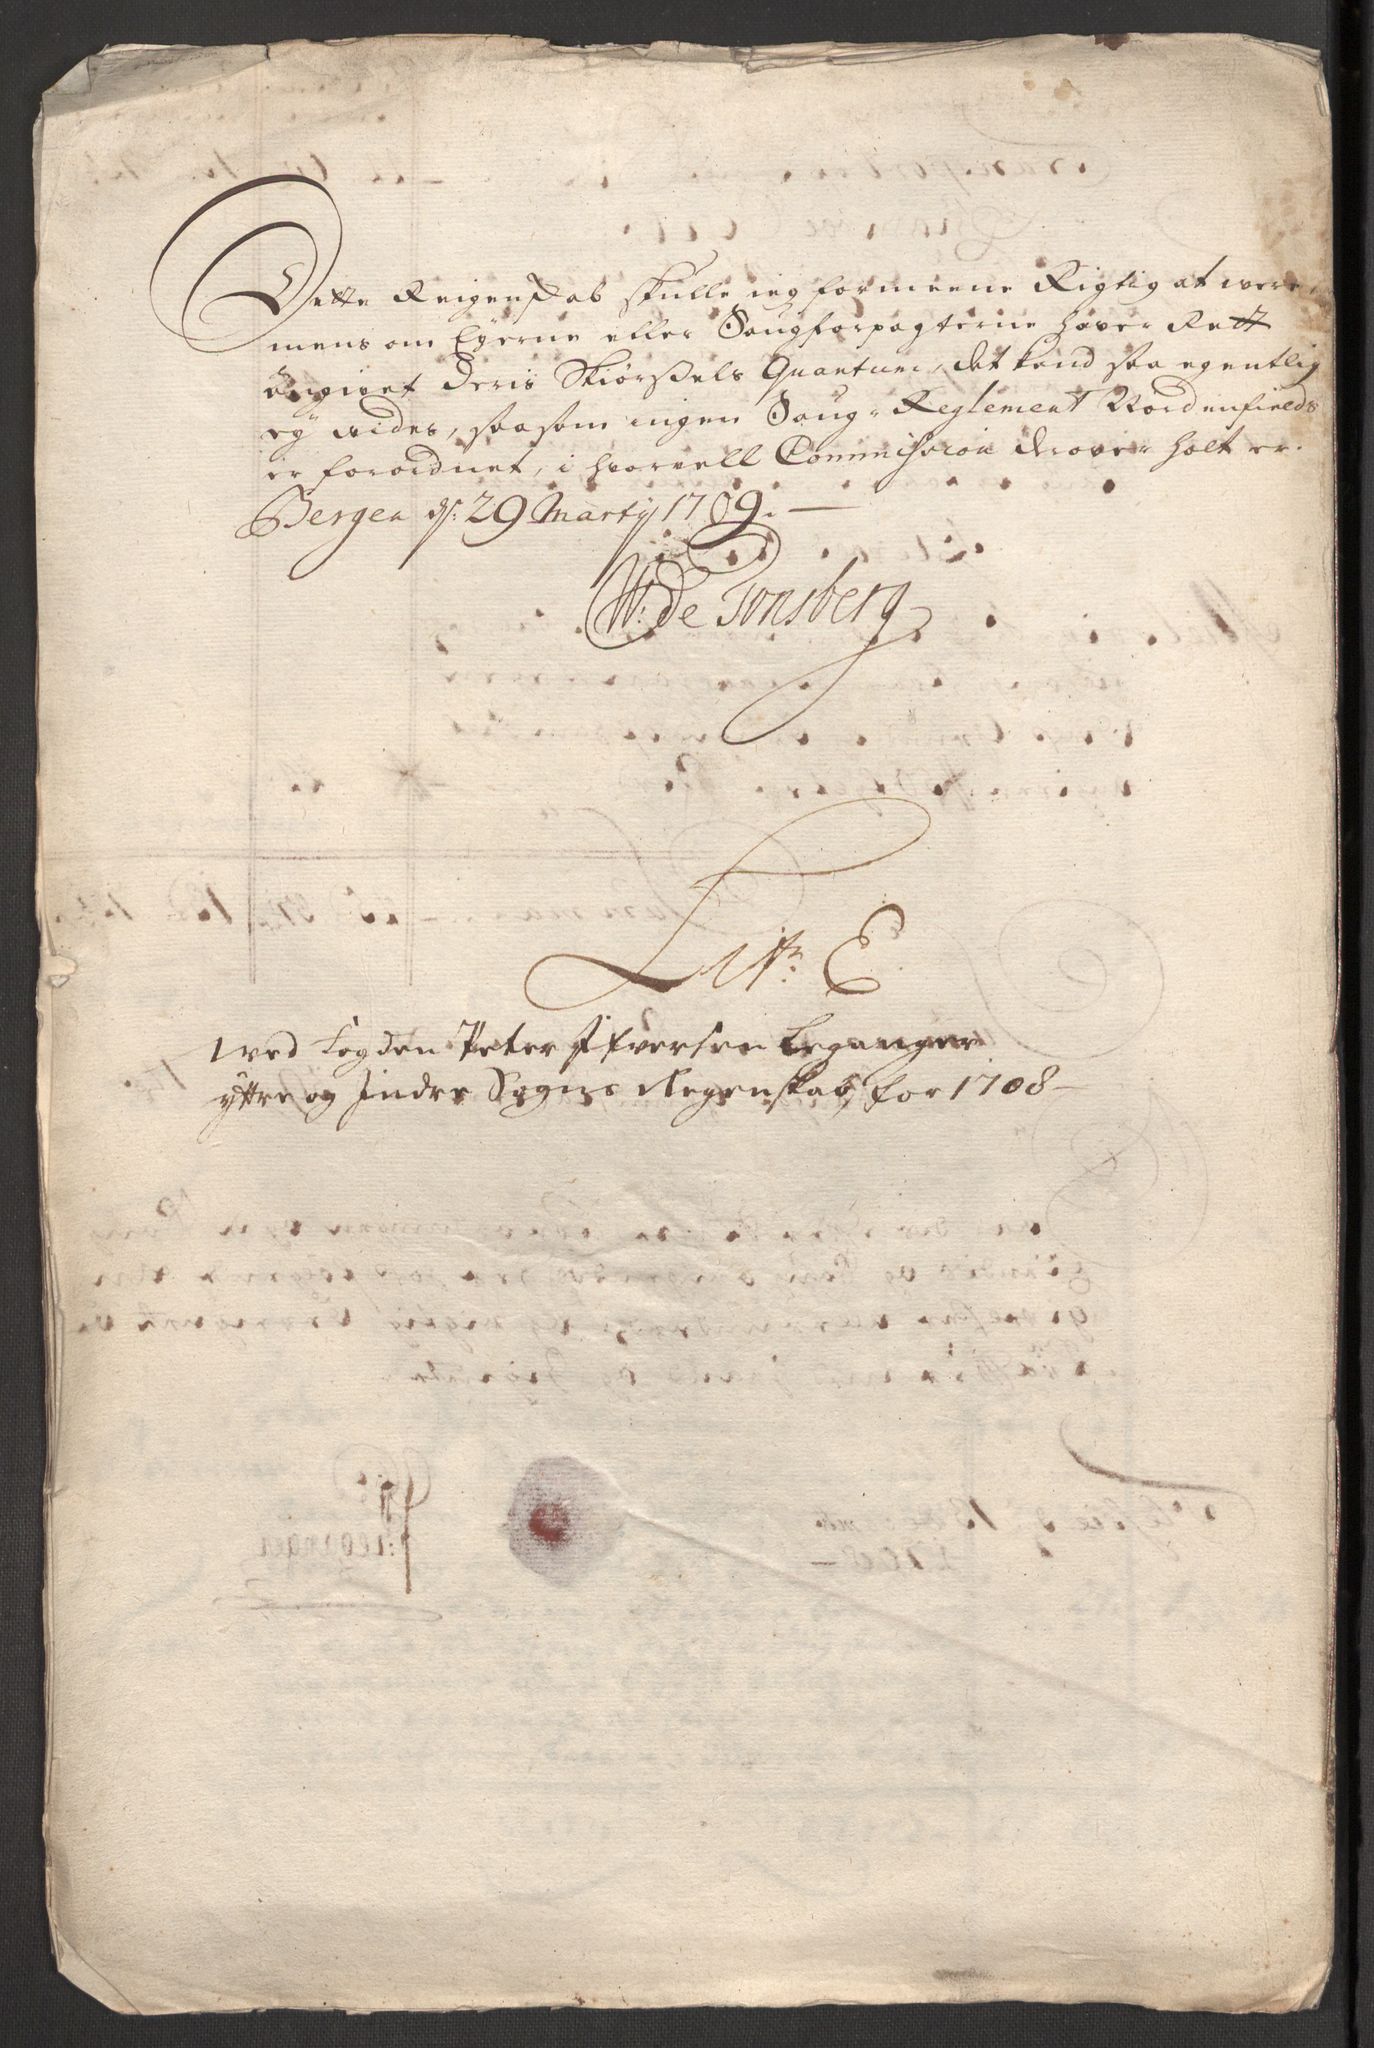 Dette Reigenskab skulle ieg formeene Rigtig at were,
mens om Eyerne eller Saugforpagterne haver Rett
angivet deris Skiørssels Quantum, det kand saa egentlig
ey vides, saasom ingen Saug-Reglement Nordenfields
er forordnet, i hvorvell Commission derover holt er.
Bergen ds: 29 Marty 1709. —
W: De Tonsberg
Litr: E
wed Fogden Peter Ifversen Leganger
yttre og Indre Sogns Regenskab, for 1708 —